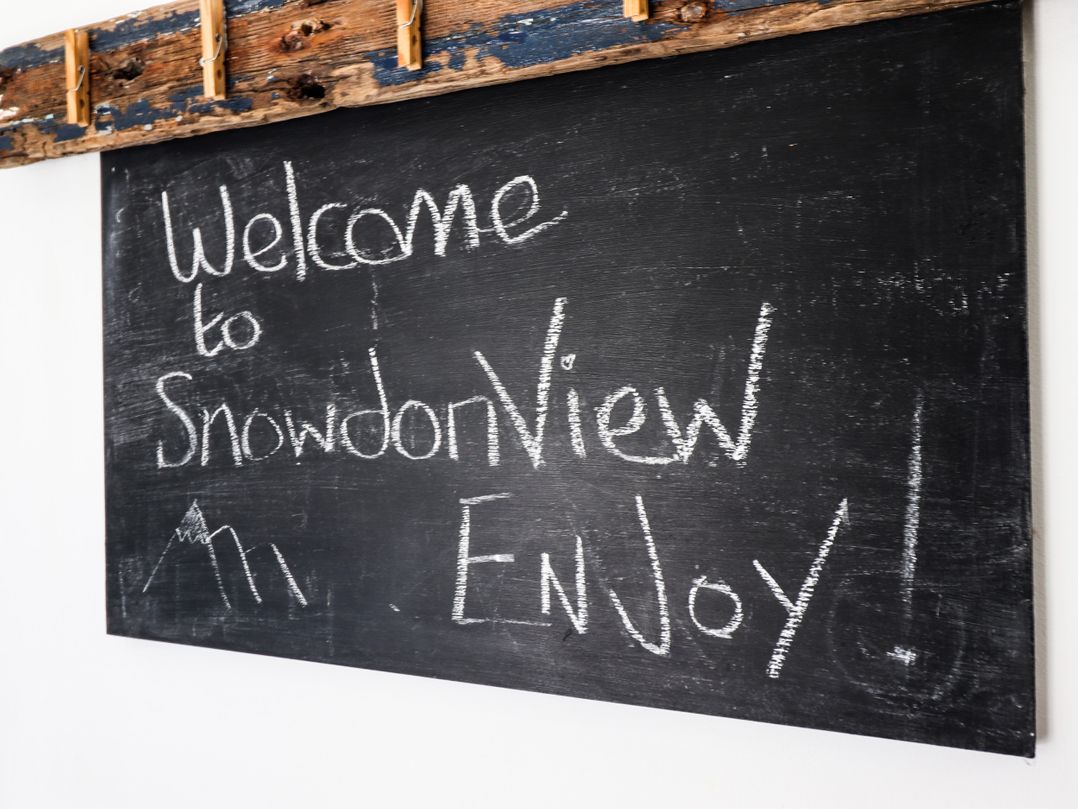 Welcome
to
SnowdonView
ENJoy!